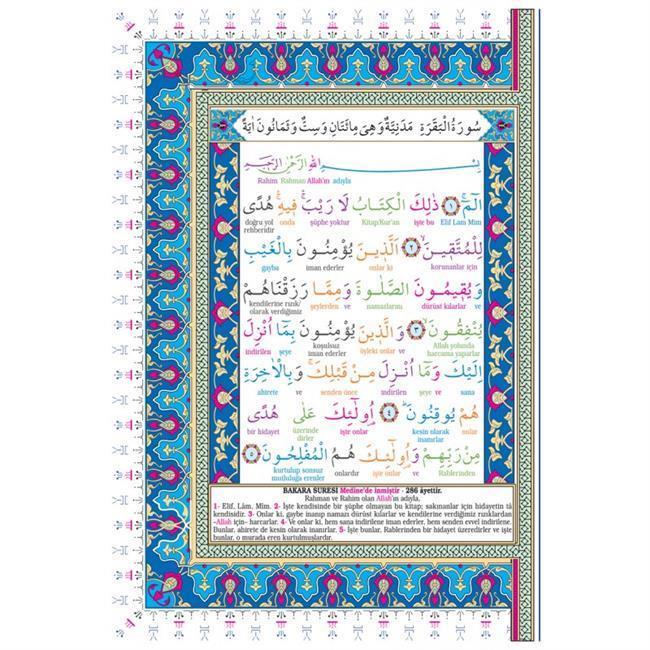 سُورَةُ الْبَقَرَةِ مَدَنِيَّةٌ وَهِىَ مِائَتَانِ وَسِتٌّ وَثَمَانُونَ اٰيَةً
بِسْمِ اللّٰهِ الرَّحْمٰنِ الرَّحٖيمِ
Rahim Rahman Allah'ın adıyla
الٓمٓ ﴿١﴾ ذٰلِكَ الْكِتَابُ لَا رَيْبَۚ فٖيهِۚ هُدًى
doğru yol rehberidir onda şüphe yoktur Kitap/Kur'an işte bu Elif Lam Mim
لِلْمُتَّقٖينَۙ ﴿٢﴾ اَلَّذٖينَ يُؤْمِنُونَ بِالْغَيْبِ
gayba iman ederler onlar ki korunanlar için
وَيُقٖيمُونَ الصَّلٰوةَ وَمِمَّا رَزَقْنَاهُمْ
kendilerine rızık/ olarak verdiğimiz şeylerden ve namazlarını dürüst kılarlar ve
يُنْفِقُونَۙ ﴿٣﴾ وَالَّذٖينَ يُؤْمِنُونَ بِمَٓا اُنْزِلَ
indirilen şeye koşulsuz iman ederler öyleki onlar ve Allah yolunda harcama yaparlar
اِلَيْكَ وَمَٓا اُنْزِلَ مِنْ قَبْلِكَۚ وَبِالْاٰخِرَةِ
ahirete ve senden önce indirilen şeye ve sana
هُمْ يُوقِنُونَؕ ﴿٤﴾ اُو۬لٰٓئِكَ عَلٰى هُدًى
bir hidayet üzerinde dirler işte onlar kesin olarak inanırlar onlar
مِنْ رَبِّهِمْ وَاُو۬لٰٓئِكَ هُمُ الْمُفْلِحُونَ ﴿٥﴾
kurtulup sonsuz mutluluğa erenler onlardır işte onlar ve Rablerinden
BAKARA SURESİ Medine'de inmiştir - 286 âyettir.
Rahman ve Rahim olan Allah'ın adıyla,
1- Elif, Lâm, Mim. 2- İşte kendisinde bir şüphe olmayan bu kitap; sakınanlar için hidayetin tâ
kendisidir. 3- Onlar ki, gaybe inanıp namazı dürüst kılarlar ve kendilerine verdiğimiz rızıklardan
-Allah için- harcarlar. 4- Ve onlar ki, hem sana indirilene iman ederler, hem senden evvel indirilene.
Bunlar, ahirete de kesin olarak inanırlar. 5- İşte bunlar, Rablerinden bir hidayet üzeredirler ve işte
bunlar, o murada eren kurtulmuşlardır.